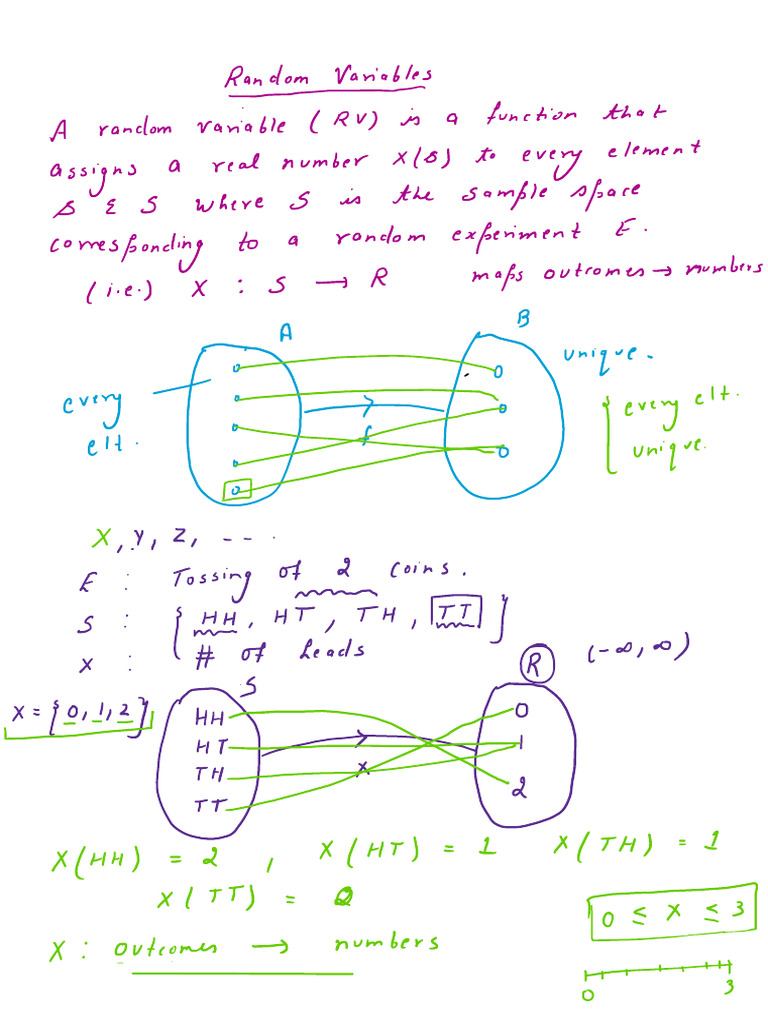 Random Variables
A random variable (RV) is a function that
assigns a real number X(s) to every element
s ∈ S where S is the sample space
corresponding to a random experiment E.
(i.e.) X : S → R maps outcomes → numbers
A B
unique.
every
elt.
f
every elt.
unique.
X, Y, Z, ---.
E : Tossing of 2 coins.
S : {HH, HT, TH, TT}
X : # of heads
S R (-∞, ∞)
X = {0, 1, 2}
HH 0
HT 1
TH X
TT 2
X(HH) = 2, X(HT) = 1 X(TH) = 1
X(TT) = 0
0 ≤ X ≤ 3
X : outcomes → numbers
0 3